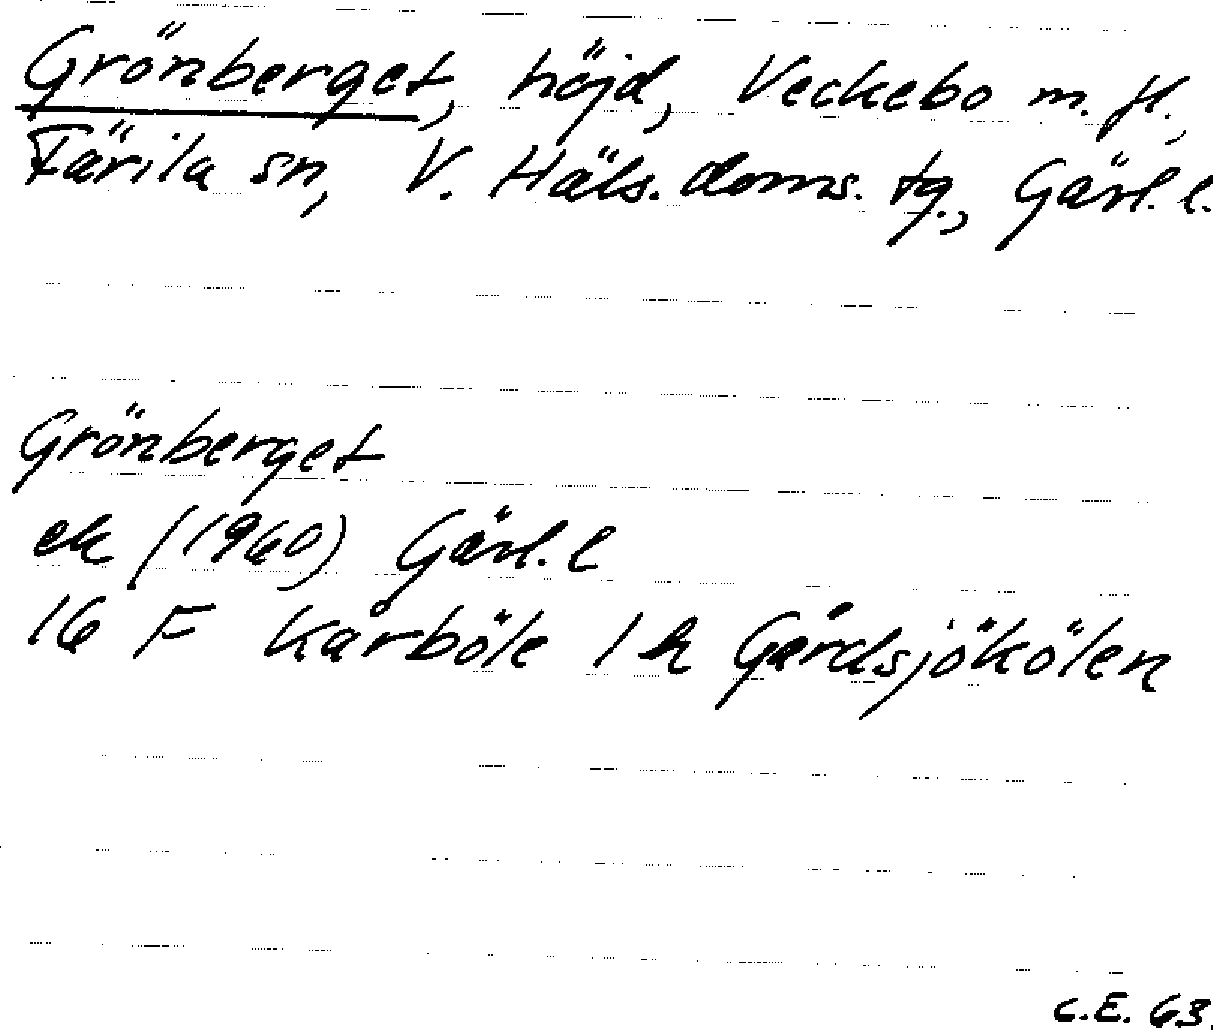 Grönberget, höjd, Veckebo m. fl.,
Färila sn, V. Häls. doms. tg., Gävl. l.
Grönberget
ek (1960) Gävl. l
16 F Kårböle 1 h Gårdsjökölen
C.E. 63.